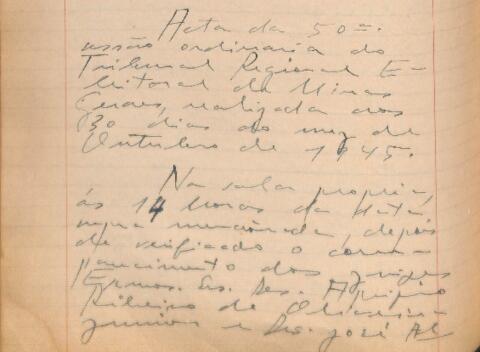 Acta da 50ª.
sessão ordinaria do
Tribunal Regional E-
leitoral de Minas
Geraes, realizada aos
30 dias do mez de
Outubro de 1945.
Na sala propria,
ás 14 horas da data
supra mencionada, depois
de verificado o com-
parecimento dos juizes
Exmos. Srs. Des.
Ribeiro de Oliveira
Junior e Drs. José Al